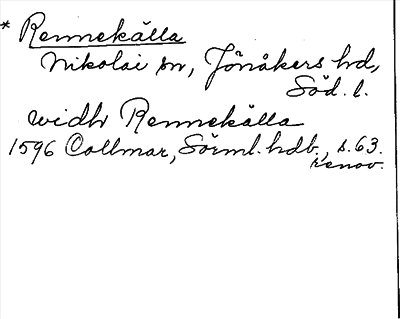 * Rennekälla
Nikolai sn, Jönåkers hd,
Söd. l.
widh Rennekälla
1596 Collmar, Sörml. hdb., s. 63.
renov.